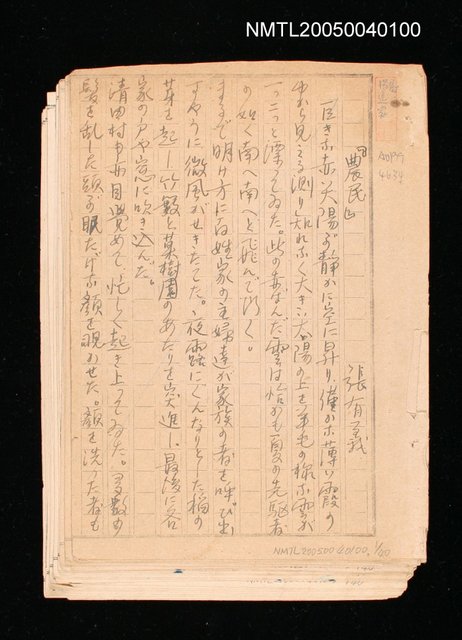 NMTL20050040100
『農民』
張有義
巨きな赤い太陽が静かに空に昇り、僅かな薄い霞の
中から見える測り知れなく大きい太陽の上を羊毛の様な雲が
一つ二つと漂ってゐた。此のあなんだ雲は恰かも夏の先駆者
の如く南へ南へと飛んで行く。
まるで明け方に百姓家の主婦達が家族の者を呼び出
すやうに微風がせきたてた。夜露にぐんなりとした稲の
葉を起し竹藪と菓樹園のあたりを突進し、最後に各
家の戸や窓に吹き込んだ。
清田村もお目覚めて、忙しく起き上ってゐた。多数の
髪を乱した頭が眠たげな顔を覗かせた。顔を洗った者も
AOPA
4634
NMTL20050040100. 1/00